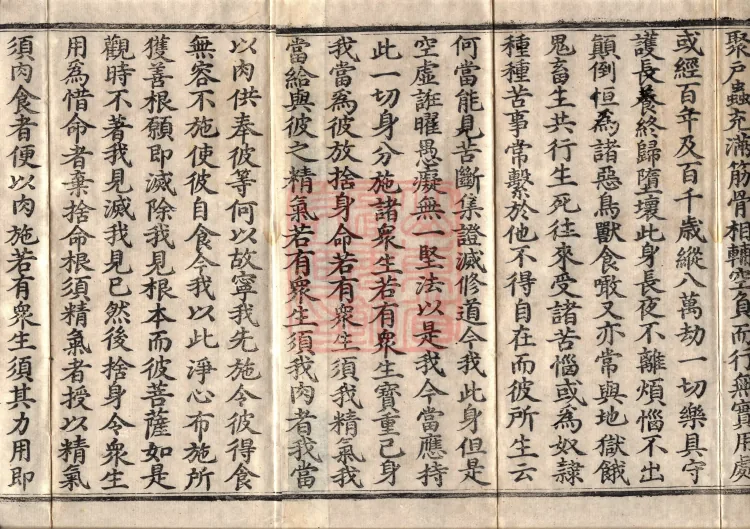 聚戸蟲充滿筋骨相輔空負而行無實用處
或經百年及百千歲縱八萬劫一切樂具守
護長養終歸墮壞此身長夜不離煩惱不出
顛倒恒為諸惡鳥獸食噉又亦常與地獄餓
鬼畜生共行生死往來受諸苦惱或為奴隷
種種苦事常繫於他不得自在而彼所生云
何當能見苦斷集證滅修道今我此身但是
空虛誑曜愚癡無一堅法以是我今當應持
此一切身分施諸衆生若有衆生寶重己身
我當為彼放捨身命若有衆生須我精氣我
當給與彼之精氣若有衆生須我肉者我當
以肉供奉彼等何以故寧我先施令彼得食
無容不施使彼自食今我以此淨心布施所
獲善根願即滅除我見根本而彼菩薩如是
觀時不著我見滅我見已然後捨身令衆生
用為惜命者棄捨命根須精氣者授以精氣
須肉食者便以肉施若有衆生須其力用即